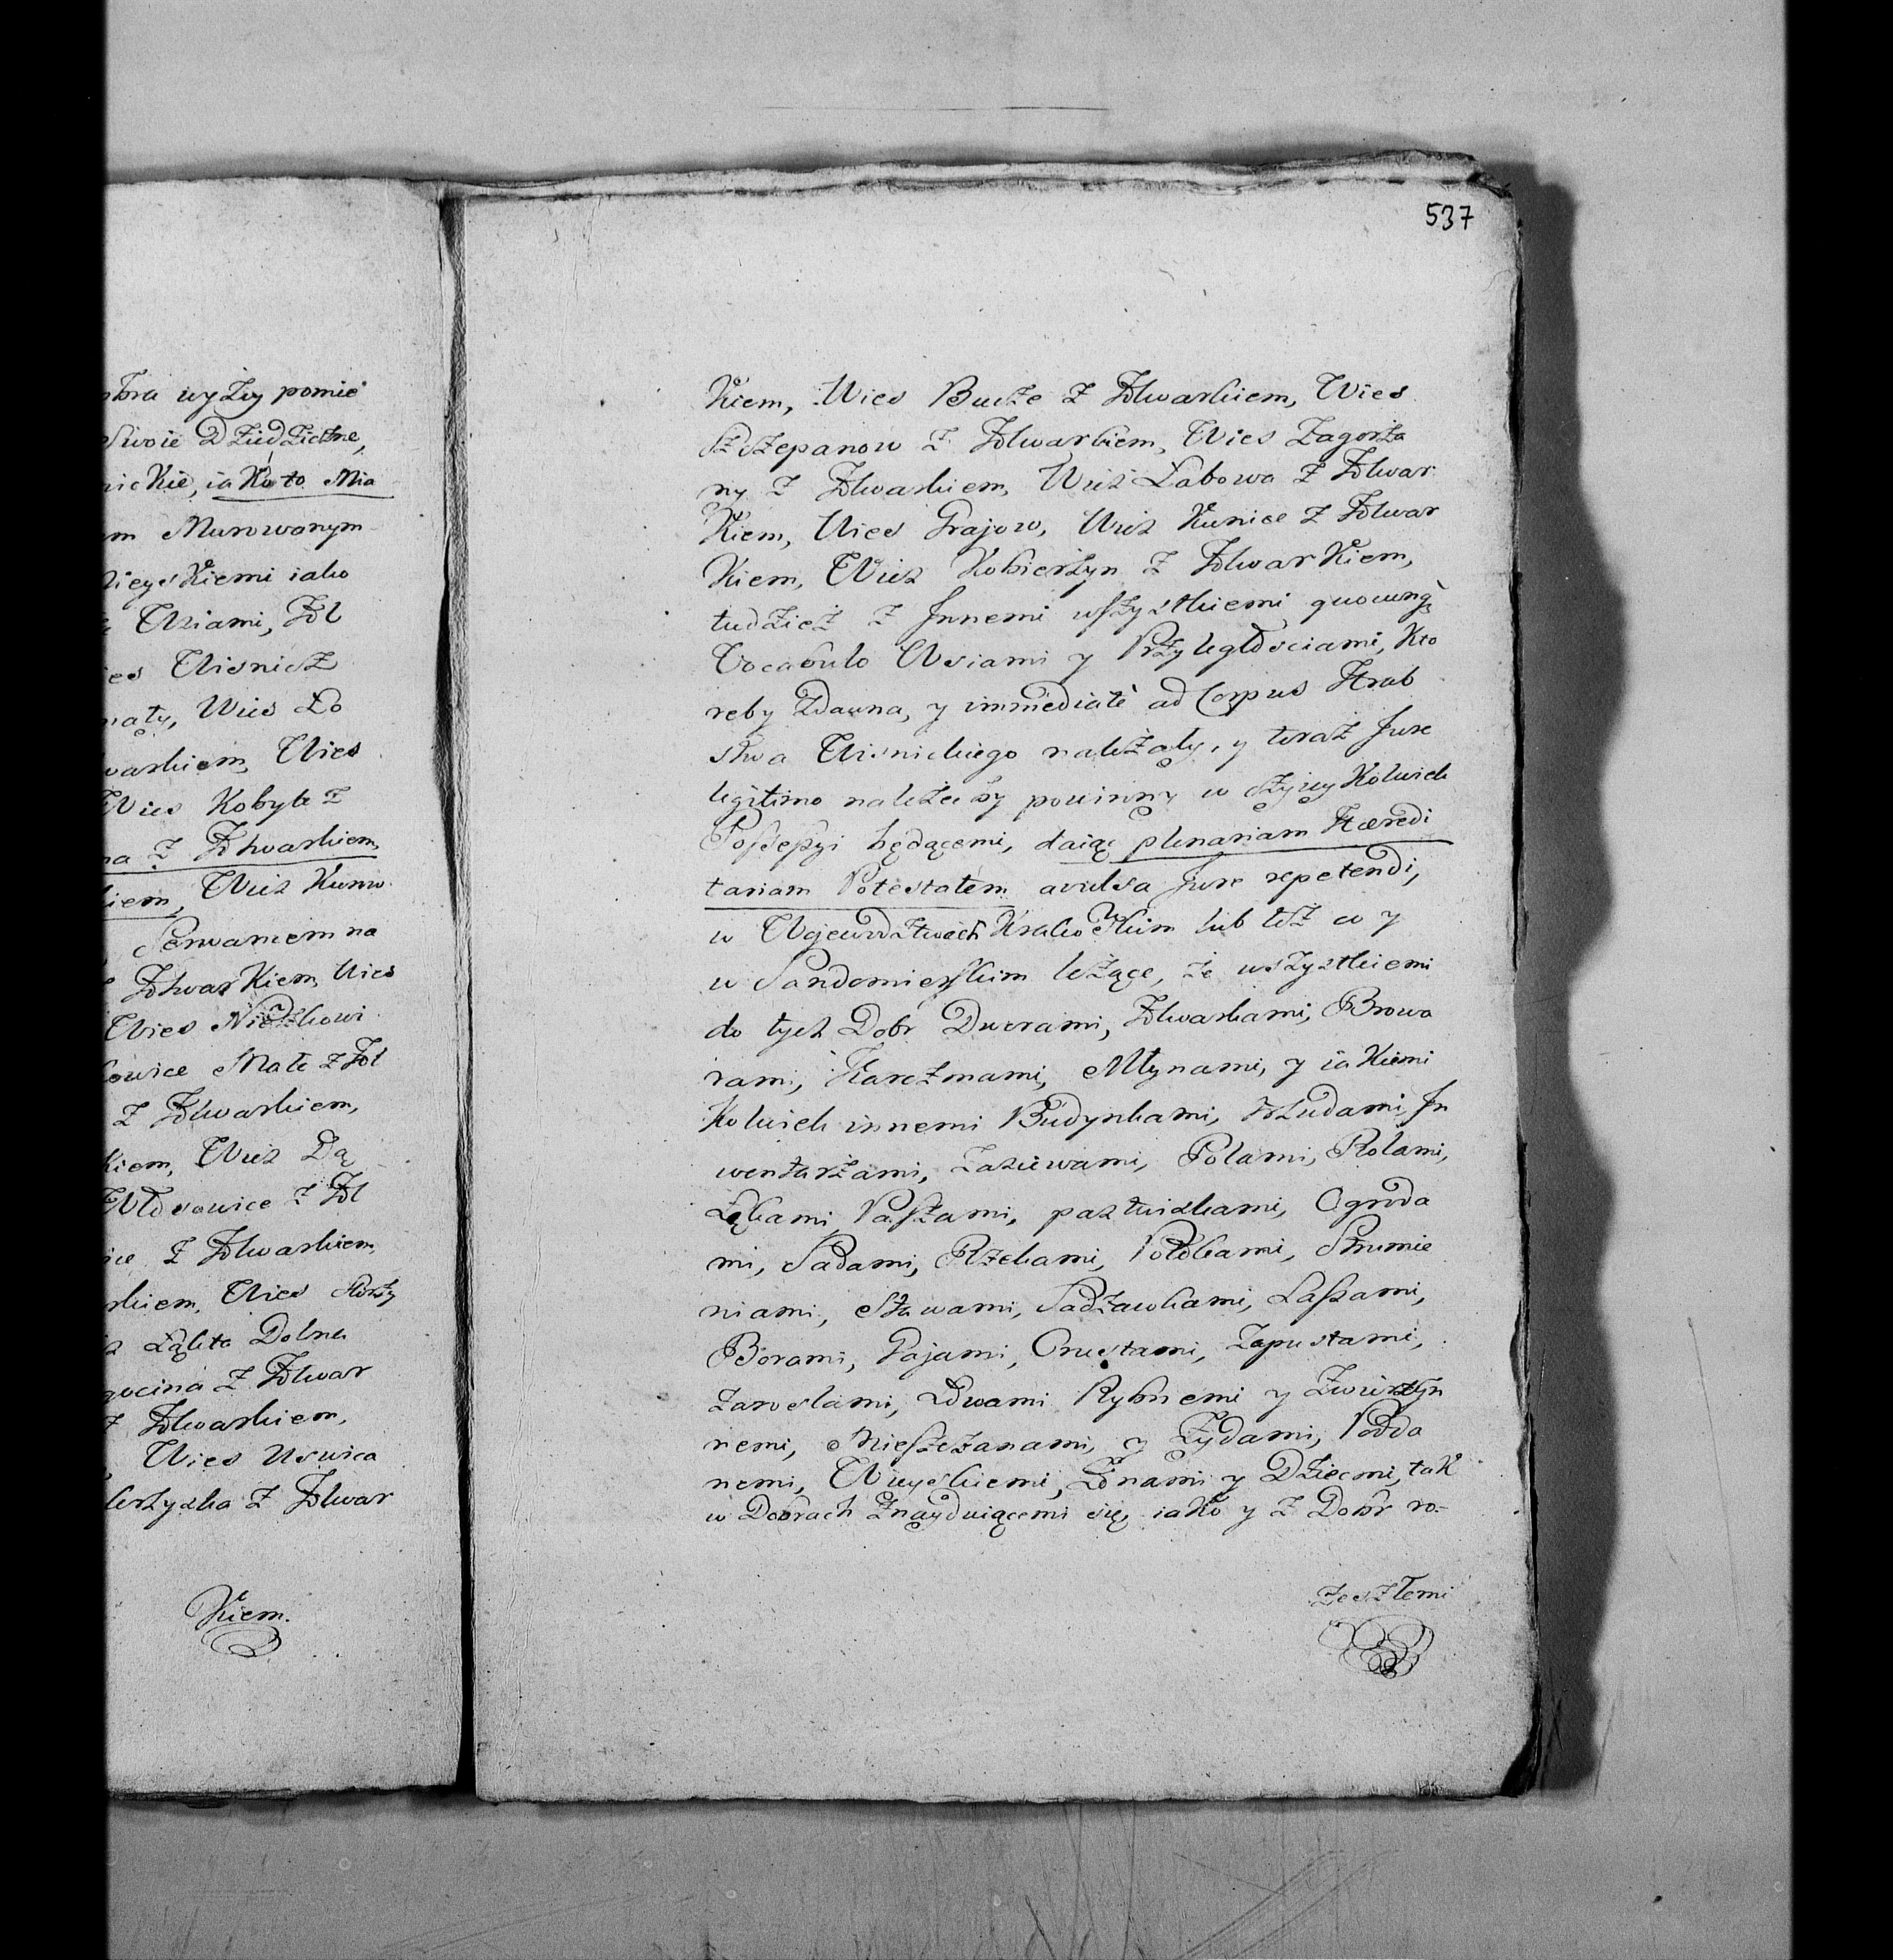 obra wyży pomie
Swoie Dziedziczne,
nickie, iako to Mia
em Murowanym
Mieyskiemi iako
Wsiami, Fol
ies Wisnicz
mały, Wies Lo
warkiem, Wies
Wies Kobyle z
na z Folwarkiem
kiem, Wies Kuro
Serwaniem na
Folwarkiem, Wies
Wies Nieszkowi
kowice Małe z Fol
z Folwarkiem,
kiem, Wies Dą
Włosowice z Fol
ice z Folwarkiem,
rkiem, Wies Porży
s Łąkta Dolna
gocina z Folwar
z Folwarkiem,
Wies Uswica
lerzyska z Folwar
Kiem.
537
Kiem, Wies Bucze z Folwarkiem, Wies
Szczepanow z Folwarkiem, Wies Zagorza
ny z Folwarkiem, Wies Łabowa z Folwar
Kiem, Wies Grajow, Wies Kunice z Folwar
Kiem, Wies Kobierzyn z Folwarkiem,
tudzież z Innemi wszystkiemi quocunq
Vocabulo Wsiami y Przyległosciami, Kto
reby zdawna, y immediatè ad Corpus Hrab
stwa Wisnickiego należały, y teraz Jure
legitimo należeć by powinny w czyiey Kolwiek
Possessyi będącemi, daiąc plenariam Hæredi
tariam Potestatem avulsa Jure repetendi,
w Wojewodztwach Krakowskim lub też co y
w Sandomierskim leżące, ze wszystkiemi
do tych Dobr Dworami, Folwarkami, Browa
rami, Karczmami, Młynami, y iakiemi
Kolwiek innemi Budynkami, Trzudami, In
wentarzami, Zasiewami, Polami, Rolami,
Łąkami, Paszami, pastwiskami, Ogroda
mi, Sadami, Rzekami, Potokami, Strumie
niami, Stawami, Sadzawkami, Lassami,
Borami, Gajami, Chrustami, Zapustami,
Zaroslami, Łowami Rybnemi y Zwierzyn
nemi, Mieszczanami, y Żydami, Podda
nemi, Wieyskiemi, Żonami y Dziecmi, tak
w Dobrach znayduiącemi się, iako y z Dobr ro-
zeszłemi